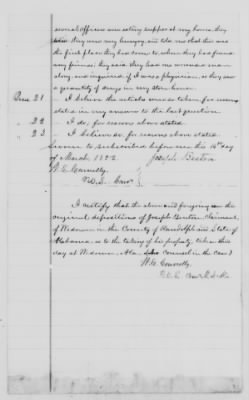 several officers were eating supper at my house, they
they were very hungry, and told me that this was
the first place they had come to when they had found
any friends; they said they had no wounded man
along and inquired if I was physician, as they saw
a quantity of drugs in my store house.
Ques 21 - I believe the articles were so taken for reasons
stated in my answer to the last question.
" 22 - I do; for reasons above stated.
" 23 - I believe so for reasons above stated
Sworn to & subscribed before me this 16th day
of March 1872. Joseph Benton
W. C. Connelly
U.S. Comr
I certify that the above and foregoing are the
original depositions of Joseph Benton Claimant,
of Wedowee in the County of Randolph and State of
Alabama as to the taking of his property, taken this
day at Wedowee, Ala. (no counsel in the case)
W. C. Connelly